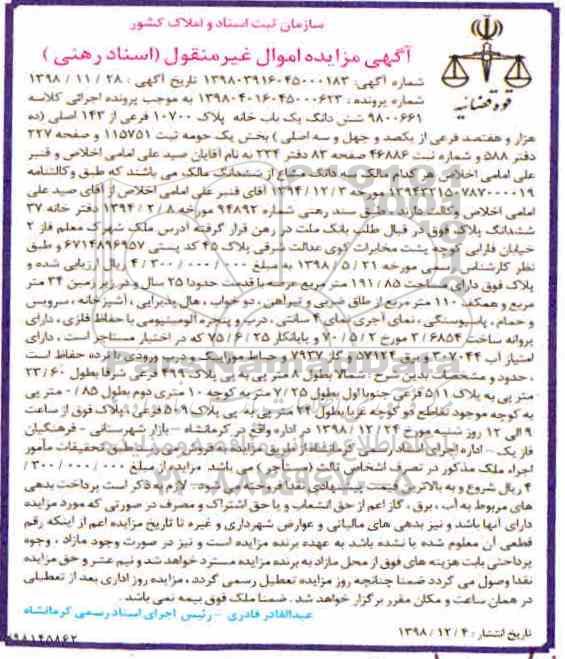 سازمان ثبت اسناد و املاک کشور
آگهی مزایده اموال غیرمنقول (اسناد رهنی)
قوه قضائیه
شماره آگهی: ۱۳۹۸۰۳۹۱۶۰۴۵۰۰۰۱۸۳ تاریخ آگهی : ۲۸ / ۱۱ / ۱۳۹۸
شماره پرونده : ۱۳۹۸۰۴۰۱۶۰۴۵۰۰۰۶۲۳ به موجب پرونده اجرائی کلاسه
۹۸۰۰۶۶۱ شش دانگ یک باب خانه پلاک ۱۰۷۰۰ فرعی از ۱۴۳ اصلی (ده
هزار و هفتصد فرعی از یکصد و چهل و سه اصلی ) بخش یک حومه ثبت ۱۱۵۷۵۱ و صفحه ۲۲۷
دفتر ۵۸۸ و شماره ثبت ۴۶۸۸۶ صفحه ۸۳ دفتر ۲۳۴ به نام آقایان صید علی امامی اخلاص و قنبر
علی امامی اخلاص هر کدام مالک سه دانگ مشاع از ششدانگ مالک می باشند که طبق وکالتنامه
مورخه ۳ / ۱۲ / ۱۳۹۴ آقای قنبر علی امامی اخلاص از آقای صید علی
امامی اخلاص وکالت دارند. طبق سند رهنی شماره ۹۴۸۹۲ مورخه ۸ / ۲ / ۱۳۹۴ دفتر خانه ۳۷
ششدانگ پلاک فوق در قبال طلب بانک ملت در رهن قرار گرفته آدرس ملک شهرک معلم فاز ۲
خیابان فارابی کوچه پشت مخابرات کوی عدالت شرقی پلاک ۴۵ کد پستی ۶۷۱۴۸۹۶۹۵۷ و طبق
نظر کارشناس رسمی مورخه ۲۱ / ۵ / ۱۳۹۸ به مبلغ ۰۰۰ / ۰۰۰ / ۳۰۰ / ۴ ریال ارزیابی شده و
پلاک فوق دارای مساحت ۸۵ / ۱۹۱ متر مربع عرصه با قدمت حدودا ۲۵ سال و در زیر زمین ۳۴ متر
مربع و همکف ۱۱۰ متر مربع از طاق ضربی و تیرآهن ، دو خواب ، هال پذیرایی ، آشپزخانه ، سرویس
و حمام ، پاسیو سنگی ، نمای آجری نمای ۴ سانتی ، درب و پنجره آلومینیومی با حفاظ فلزی ، دارای
پروانه ساخت ۶۸۵۴ / ۳ مورخ ۲ / ۵ / ۷۰ و پایانکار ۲۵ / ۶ / ۷۵ که در اختیار مستاجر است ، دارای
امتیاز آب ۲۳۰۷۰۴۴ و برق ۵۷۱۲۲ و گاز ۷۹۳۷ و حیاط موزاییک و درب ورودی با نرده حفاظ است
، حدود و مشخصات بدین شرح : شمالا بطول ۸ متر پی به پی پلاک ۴۹۹ فرعی شرقا بطول ۶۰ / ۲۳
متر پی به پلاک ۵۱۱ فرعی جنوبا اول بطول ۲۵ / ۷ متر به کوچه ۱۰ متری دوم بطول ۸۵ / ۰ متر پی
به کوچه موجود تقاطع دو کوچه غربا بطول ۲۴ متر پی به پی پلاک ۵۰۹ فرعی . پلاک فوق از ساعت
۹ الی ۱۲ روز شنبه مورخ ۲۴ / ۱۲ / ۱۳۹۸ در اداره واقع در کرمانشاه - بازار شهرستانی - فرهنگیان
فاز یک - اداره اجرای اسناد رسمی کرمانشاه از طریق مزایده به فروش می رسد طبق تحقیقات مأمور
اجراء ملک مذکور در تصرف اشخاص ثالث (مستأجر) می باشد. مزایده از مبلغ ۰۰۰ / ۰۰۰ / ۳۰۰ /
۴ ریال شروع و به بالاترین قیمت پیشنهادی نقدا فروخته می شود. لازم به ذکر است پرداخت بدهی
های مربوط به آب ، برق ، گاز اعم از حق انشعاب و یا حق اشتراک و مصرف در صورتی که مورد مزایده
دارای آنها باشد و نیز بدهی های مالیاتی و عوارض شهرداری و غیره تا تاریخ مزایده اعم از اینکه رقم
قطعی آن معلوم شده یا نشده باشد به عهده برنده مزایده است و نیز در صورت وجود مازاد ، وجوه
پرداختی بابت هزینه های فوق از محل مازاد به برنده مزایده مسترد خواهد شد و نیم عشر و حق مزایده
نقدا وصول می گردد ضمنا چنانچه روز مزایده تعطیل رسمی گردد ، مزایده روز اداری بعد از تعطیلی
در همان ساعت و مکان مقرر برگزار خواهد شد . ضمنا ملک فوق بیمه نمی باشد .
عبدالقادر قادری - رئیس اجرای اسناد رسمی کرمانشاه
تاریخ انتشار : ۴ / ۱۲ / ۱۳۹۸
۹۸۱۴۵۸۶۲